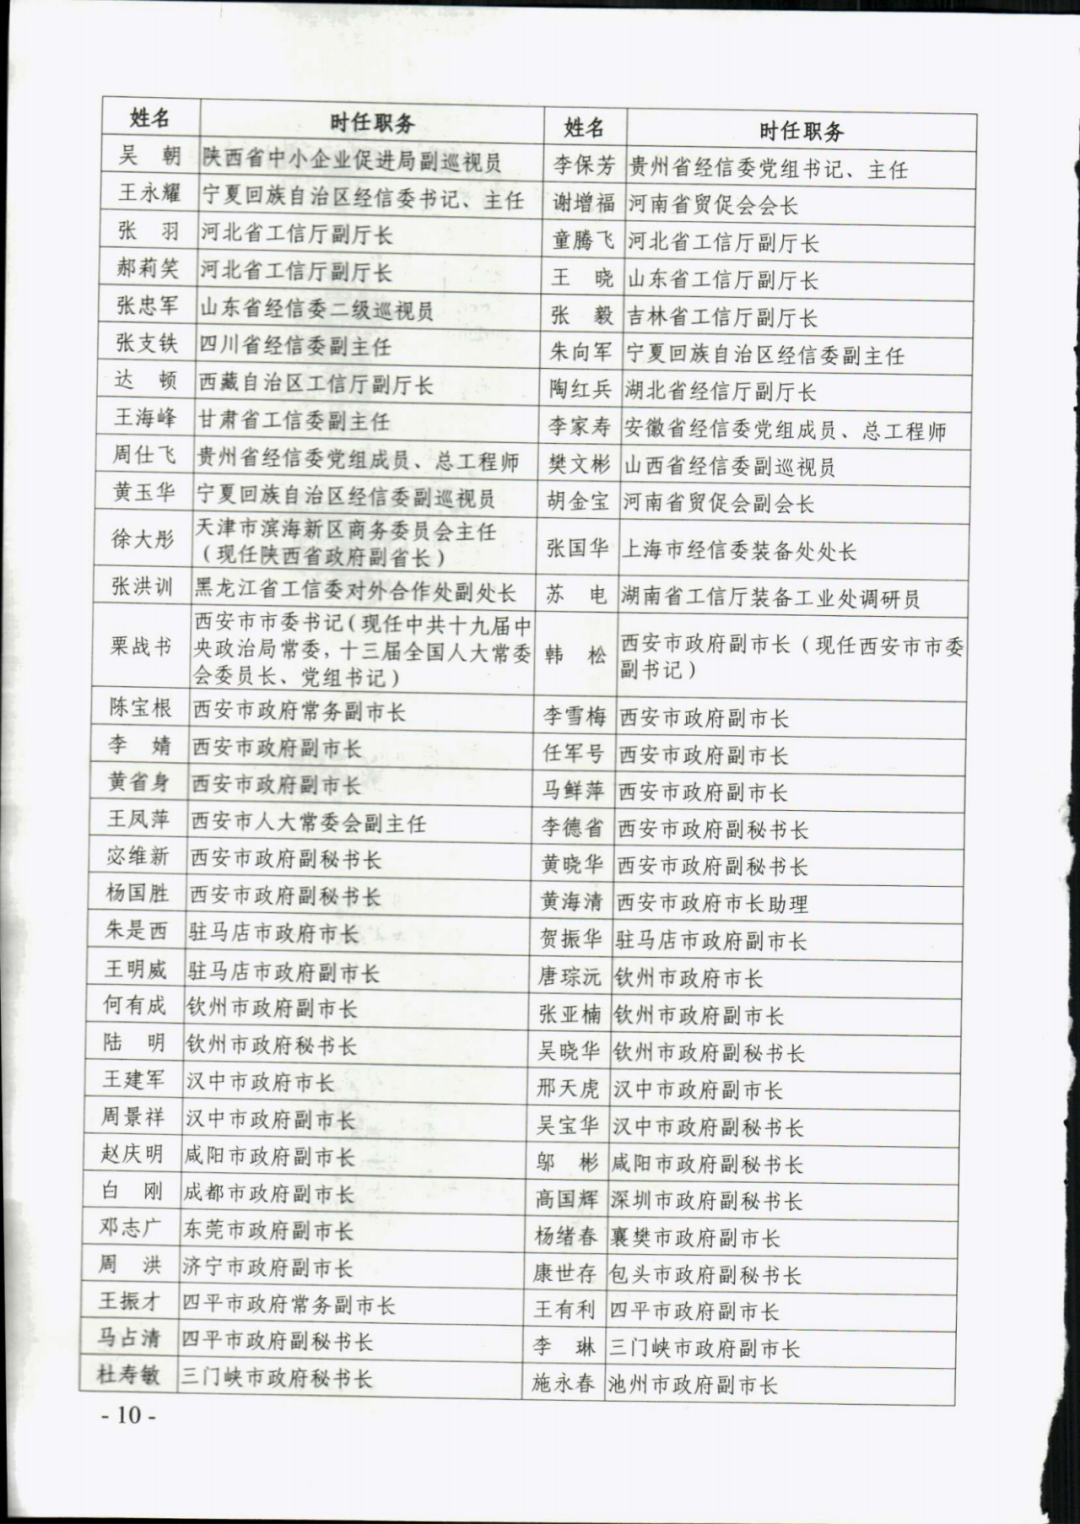 姓名 时任职务 姓名 时任职务
吴 朝 陕西省中小企业促进局副巡视员 李保芳 贵州省经信委党组书记、主任
王永耀 宁夏回族自治区经信委书记、主任 谢增福 河南省贸促会会长
张 羽 河北省工信厅副厅长 童腾飞 河北省工信厅副厅长
郝莉笑 河北省工信厅副厅长 王 晓 山东省工信厅副厅长
张忠军 山东省经信委二级巡视员 张 毅 吉林省工信厅副厅长
张支铁 四川省经信委副主任 朱向军 宁夏回族自治区经信委副主任
达 顿 西藏自治区工信厅副厅长 陶红兵 湖北省经信厅副厅长
王海峰 甘肃省工信委副主任 李家寿 安徽省经信委党组成员、总工程师
周仕飞 贵州省经信委党组成员、总工程师 樊文彬 山西省经信委副巡视员
黄玉华 宁夏回族自治区经信委副巡视员 胡金宝 河南省贸促会副会长
徐大彤 天津市滨海新区商务委员会主任
（现任陕西省政府副省长） 张国华 上海市经信委装备处处长
张洪训 黑龙江省工信委对外合作处副处长 苏 电 湖南省工信厅装备工业处调研员
栗战书 西安市市委书记（现任中共十九届中
央政治局常委，十三届全国人大常委
会委员长、党组书记） 韩 松 西安市政府副市长（现任西安市市委
副书记）
陈宝根 西安市政府常务副市长 李雪梅 西安市政府副市长
李 婧 西安市政府副市长 任军号 西安市政府副市长
黄省身 西安市政府副市长 马鲜萍 西安市政府副市长
王凤萍 西安市人大常委会副主任 李德省 西安市政府副秘书长
宓维新 西安市政府副秘书长 黄晓华 西安市政府副秘书长
杨国胜 西安市政府副秘书长 黄海清 西安市政府市长助理
朱是西 驻马店市政府市长 贺振华 驻马店市政府副市长
王明威 驻马店市政府副市长 唐琮沅 钦州市政府市长
何有成 钦州市政府副市长 张亚楠 钦州市政府副市长
陆 明 钦州市政府秘书长 吴晓华 钦州市政府副秘书长
王建军 汉中市政府市长 邢天虎 汉中市政府副市长
周景祥 汉中市政府副市长 吴宝华 汉中市政府副秘书长
赵庆明 咸阳市政府副市长 邬 彬 咸阳市政府副秘书长
白 刚 成都市政府副市长 高国辉 深圳市政府副秘书长
邓志广 东莞市政府副市长 杨绪春 襄樊市政府副市长
周 洪 济宁市政府副市长 康世存 包头市政府副秘书长
王振才 四平市政府常务副市长 王有利 四平市政府副市长
马占清 四平市政府副秘书长 李 琳 三门峡市政府副市长
杜寿敏 三门峡市政府秘书长 施永春 池州市政府副市长
- 10 -